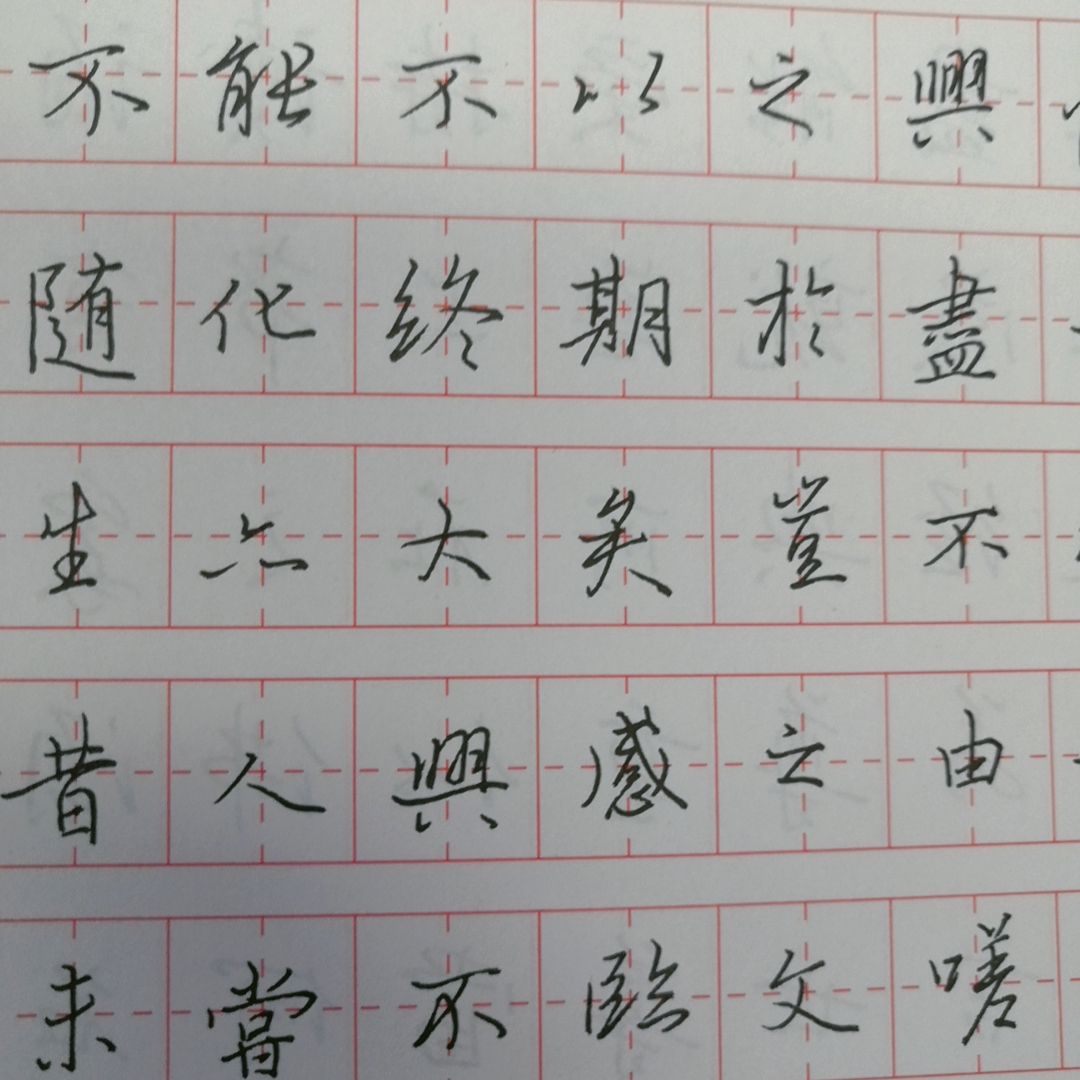 不能不以之興
随化終期於盡
生亦大矣豈不
昔人興感之由
未嘗不臨文嗟